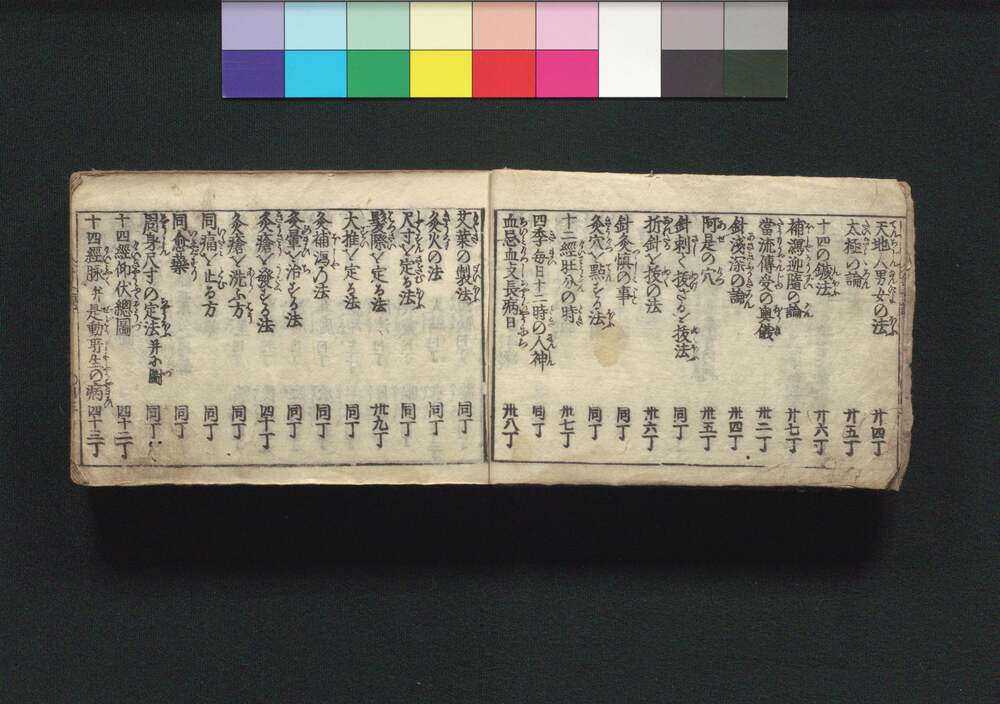 天地人男女の法 廿四丁
太極の論 廿五丁
十四の鍼法 廿六丁
補瀉迎隨の論 廿七丁
當流傳受の奥儀 卅二丁
針淺深の論 卅四丁
阿是の穴 卅五丁
針刺て抜ざるを抜法 同丁
折針を抜の法 卅六丁
針灸慎の事 同丁
灸穴を點する法 同丁
十二經旺分の時 卅七丁
四季毎日十二時の人神 同丁
血忌血支長病日 卅八丁
艾葉の製法 同丁
灸火の法 同丁
尺寸を定る法 同丁
髮際を定る法 卅九丁
大推を定る法 同丁
灸補瀉の法 同丁
灸暈を治する法 同丁
灸瘡を發する法 四十丁
灸瘡を洗ふ方 同丁
同痛を止る方 同丁
同愈藥 同丁
周身尺寸の定法并に圖 同丁
十四經仰伏總圖 四十二丁
十四經脉并是動所生の病 四十三丁